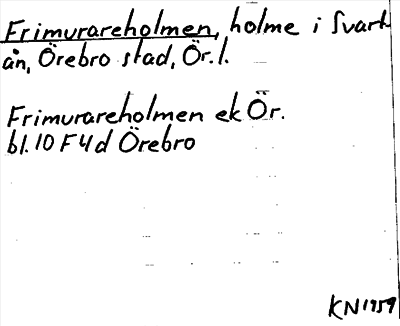 Frimurareholmen, holme i Svart-
ån, Örebro stad, Ör.l.
Frimurareholmen ek Ör.
bl. 10 F4d Örebro
KN 1959